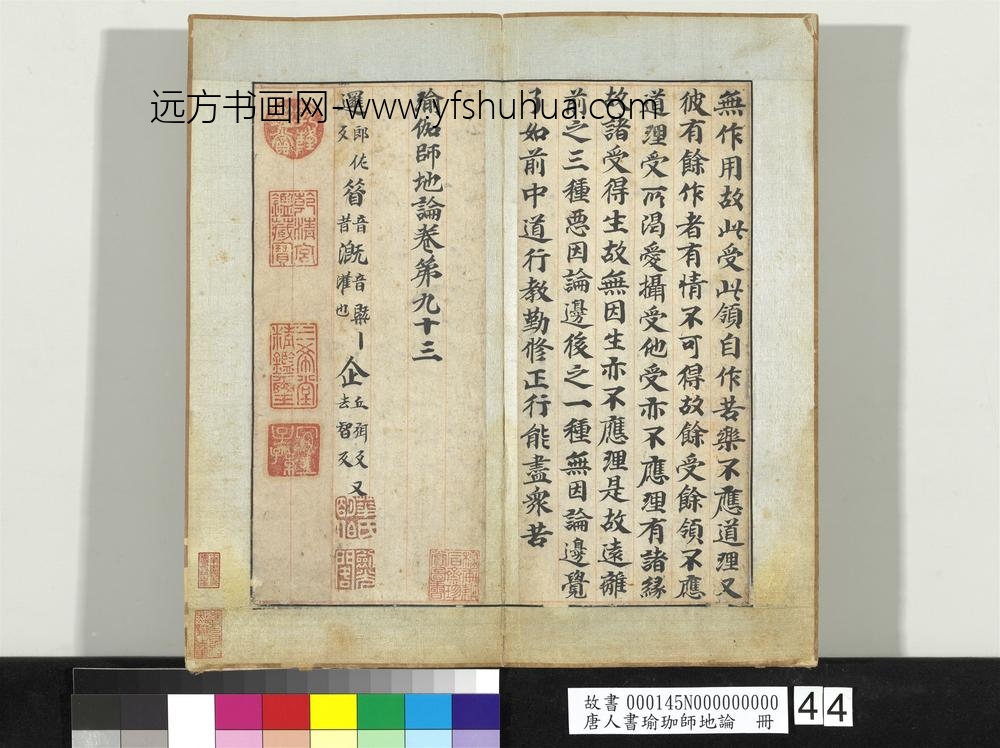 無作用故此受此領自作苦樂不應道理又
彼有餘作者有情不可得故餘受餘領不應
道理受所渴愛攝受他受亦不應理有諸緣
故諸受得生故無因生亦不應理是故遠離
前之三種惡因論邊後之一種無因論邊覺
了如前中道行教勤修正行能盡衆苦
瑜伽師地論卷第九十三
郎佐
反
音
昔
溉
音
灌也
企
丘弭反又
去智反
乾清宮
鑑藏寶
三希堂
精鑑璽
宜子孫
远方书画网-www.yfshuhua.com
故書 000145N000000000
唐人書瑜珈師地論 冊
44